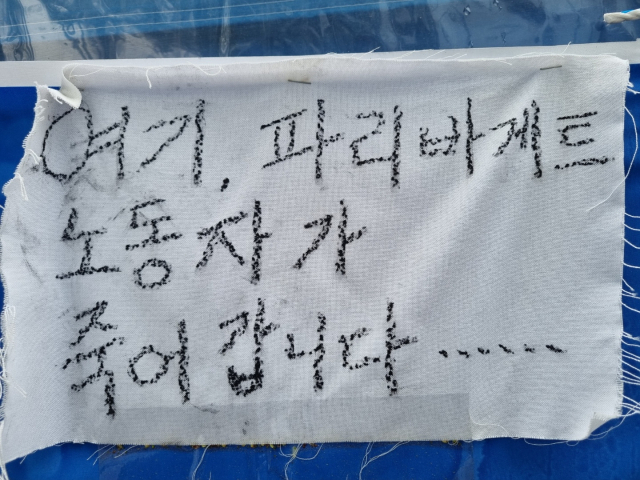 여기, 파리바게트
노동자가
죽어갑니다......